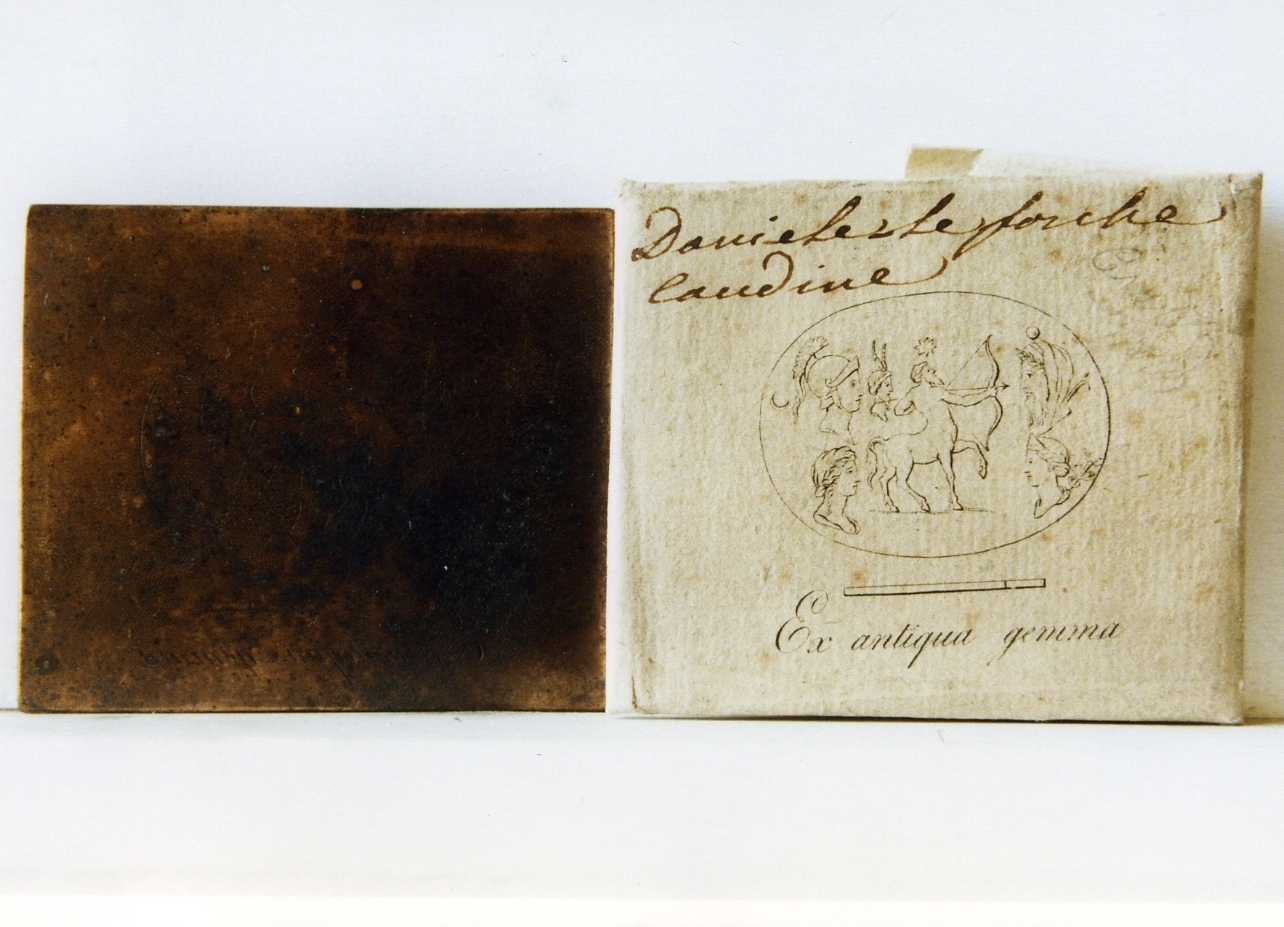 Daniele e le forche
caudine
Ex antiqua gemma